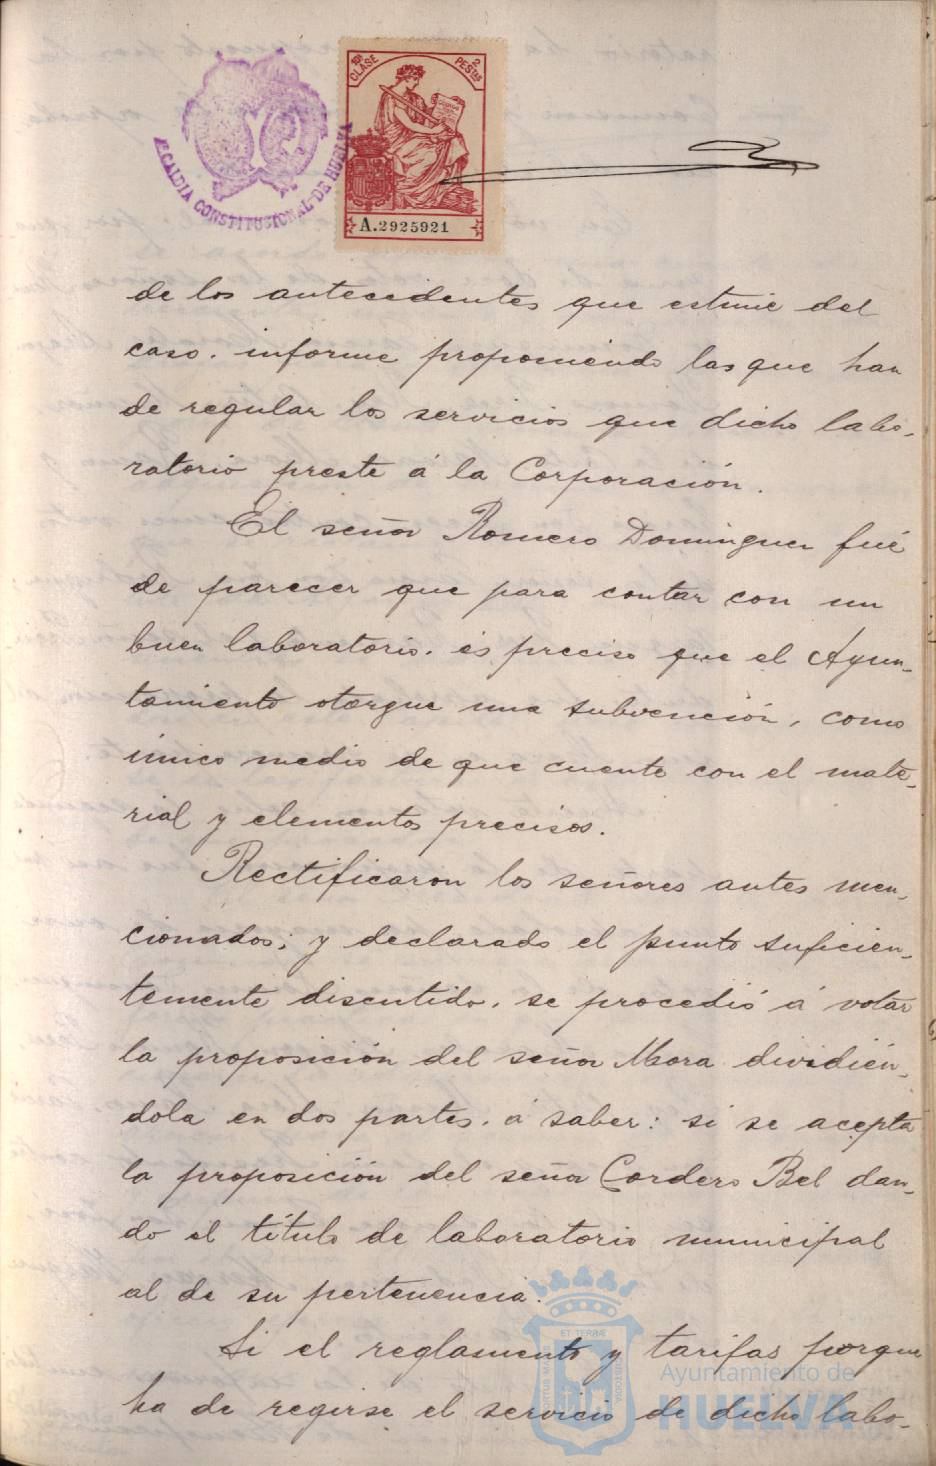 ALCALDIA CONSTITUCIONAL DE HUELVA
10ª CLASE 2 PESTAS
A.2925921
de los antecedentes que estime del
caso. informe proponiendo las que han
de regular los servicios que dicho labo-
ratorio preste á la Corporación.
El señor Romero Dominguez fué
de parecer que para contar con un
buen laboratorio. es preciso que el Ayun-
tamiento otorgue una subvención, como
único medio de que cuente con el mate-
rial y elementos precisos.
Rectificaron los señores antes men-
cionados; y declarado el punto suficien-
temente discutido. se procedió á votar
la proposición del señor Mora dividién-
dola en dos partes. á saber: si se acepta
la proposición del señor Cordero Bel dan-
do el título de laboratorio municipal
al de su pertenencia.
Si el reglamento y tarifas porque
ha de regirse el servicio de dicho labo-
Ayuntamiento de
HUELVA